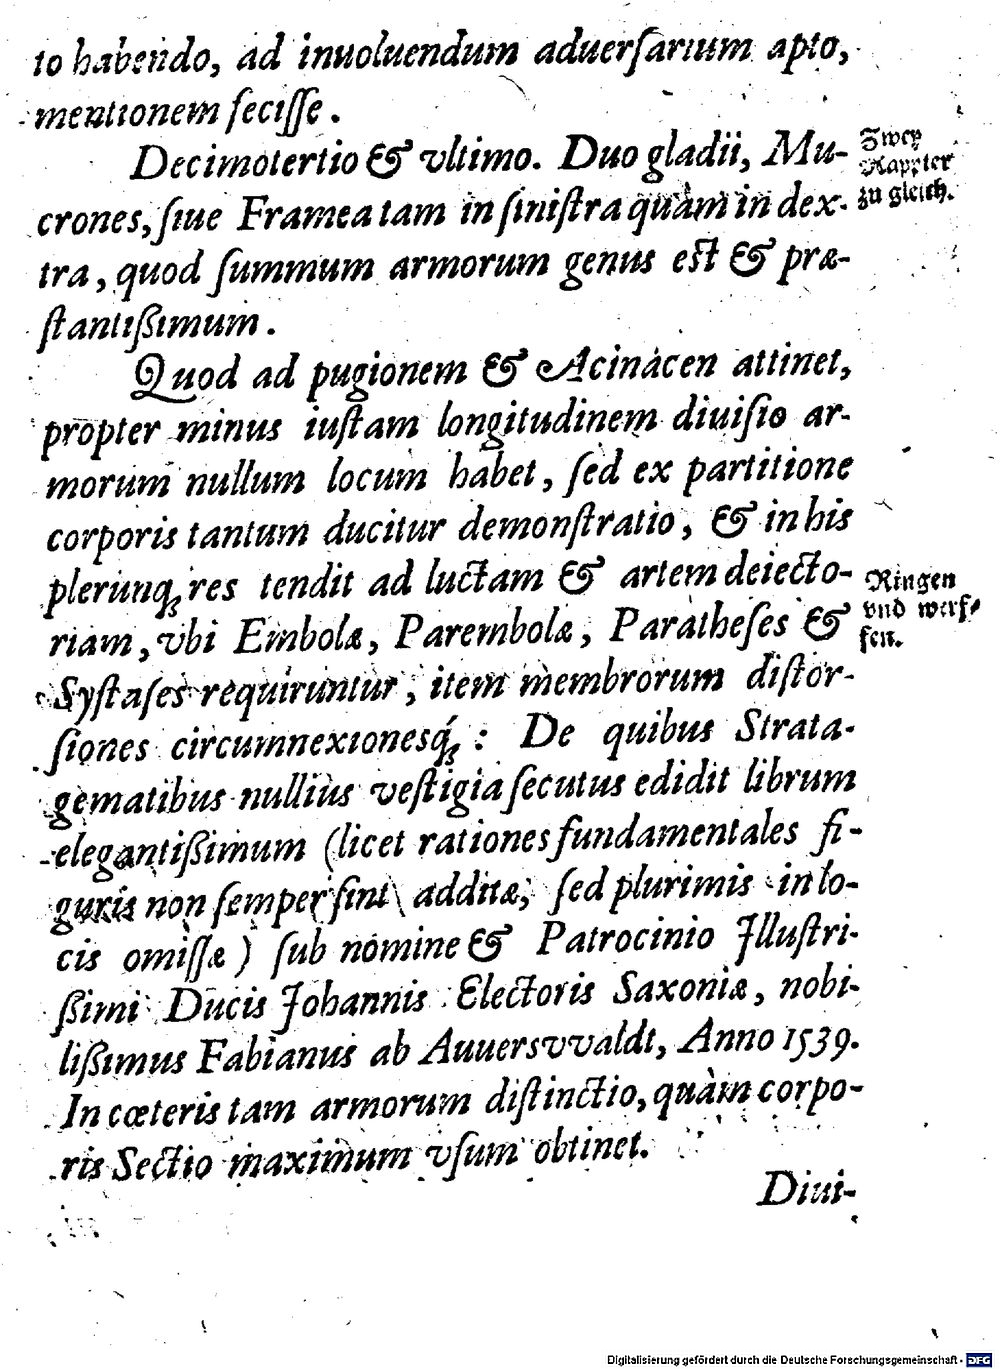 to habendo, ad inuoluendum aduerſarium apto,
mentionem feciſſe.
Decimotertio & vltimo. Duo gladii, Mu-
crones, ſiue Framea tam in ſiniſtra quàm in dex-
tra, quod ſummum armorum genus eſt & præ-
ſtantißimum.
Quod ad pugionem & Acinàcen attinet,
propter minus iuſtam longitudinem diuiſio ar-
morum nullum locum habet, ſed ex partitione
corporis tantum ducitur demonſtratio, & in his
plerunq́; res tendit ad luctam & artem deiecto-
riam, vbi Embolæ, Parembolæ, Paratheſes &
Syſtaſes requiruntur, item membrorum diſtor-
ſiones circumnexionesq́; : De quibus Strata-
gematibus nullius veſtigia ſecutus edidit librum
elegantißimum (licet rationes fundamentales fi-
guris non ſemper ſint additæ, ſed plurimis in lo-
cis omiſſæ) ſub nomine & Patrocinio Illuſtri-
ßimi Ducis Johannis Electoris Saxoniæ, nobi-
lißimus Fabianus ab Auuersvvaldt, Anno 1539.
In cœteris tam armorum diſtinctio, quàm corpo-
ris Sectio maximum vſum obtinet.
Diui-
Zwey
Rappier
zu gleich.
Ringen
vnd werf-
fen.
Digitalisierung gefördert durch die Deutsche Forschungsgemeinschaft - DFG